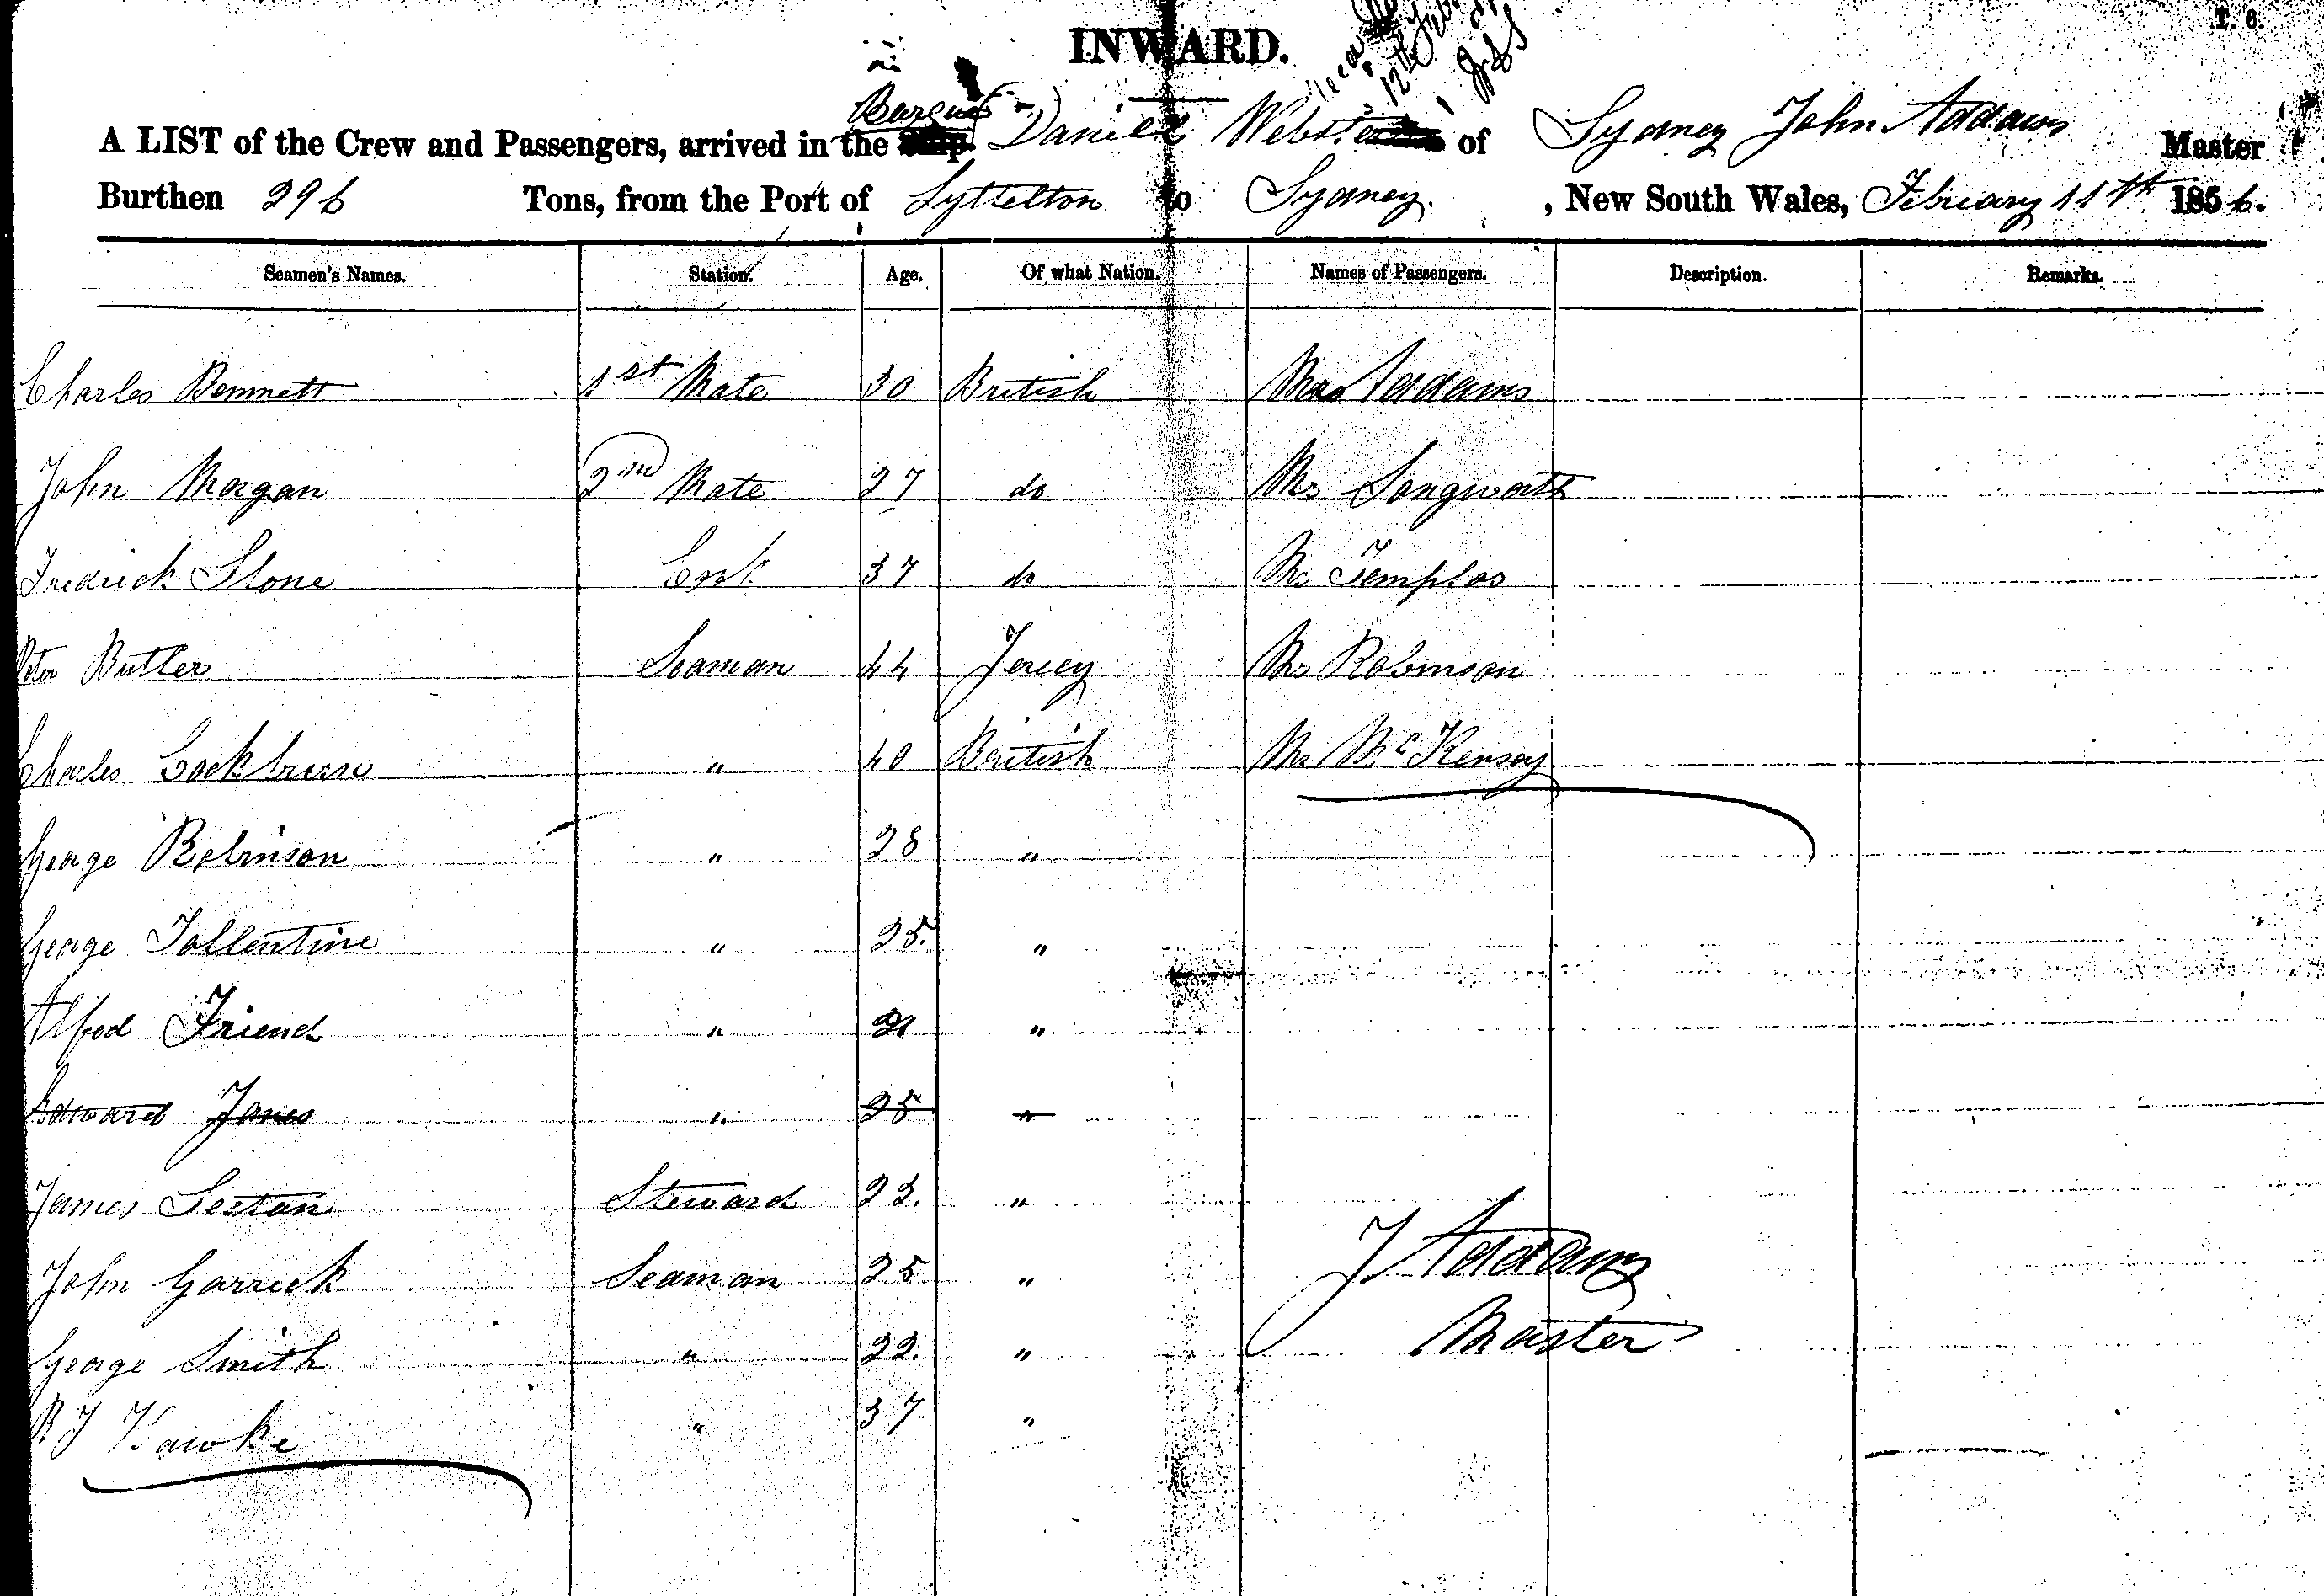 T. 6.
INWARD.
12th
A LIST of the Crew and Passengers, arrived in the Barque Daniel Webster of Sydney John Addams Master
Burthen 296 Tons, from the Port of Lyttelton to Sydney. , New South Wales, February 11th 1856.
Seamen's Names. Station. Age. Of what Nation. Names of Passengers. Description. Remarks.
Charles Bennett 1st Mate 30 British Mrs Addams
John Morgan 2nd Mate 27 do Mr Longworth
Fredrick Stone Cook 37 do Mr Temples
Peter Butler Seaman 44 Jercey Mr Robinson
Charles Cockburn " 40 British Mr McKensey
George Robinson " 28 "
George Tollentine " 25. "
Alfred Friend " 21 "
Edward Jones " 25 "
James Sexton Steward 23. "
John Garrick Seaman 25 "
George Smith " 22. "
R J Hawke " 37 "
J Addams
Master